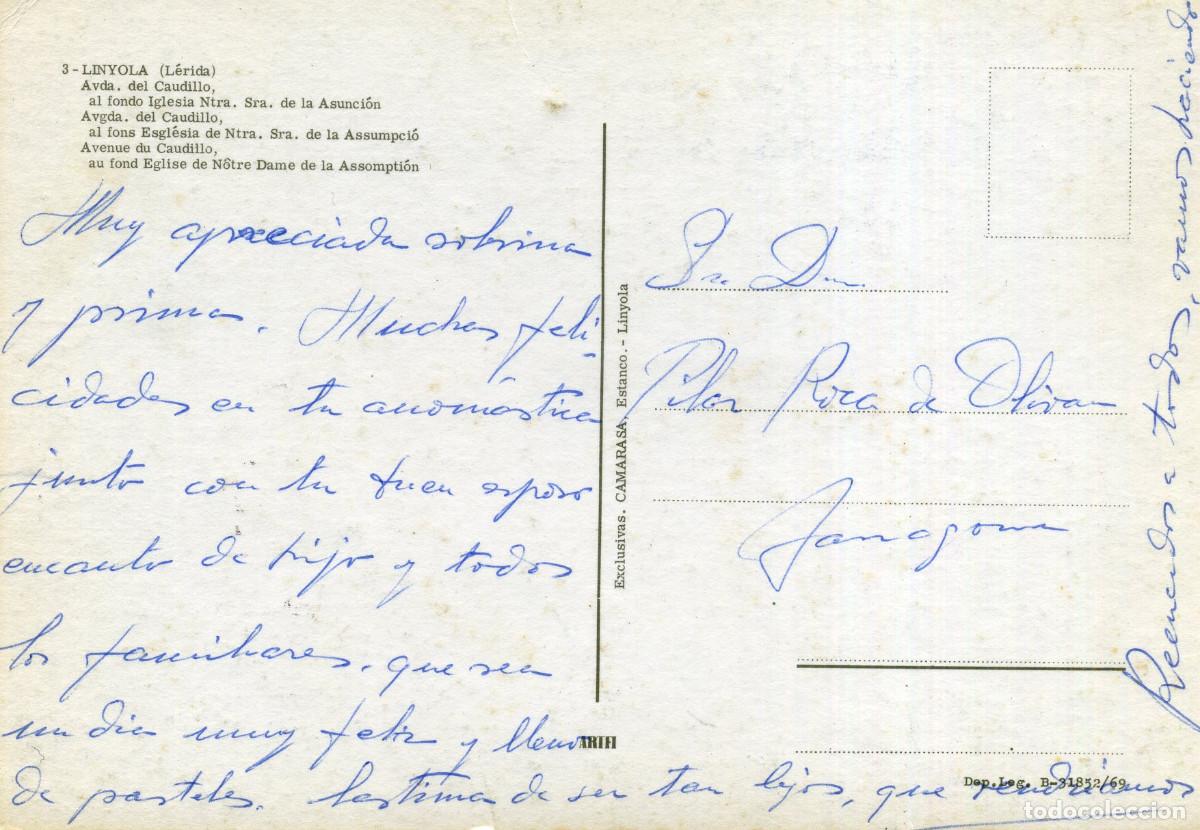 3 - LINYOLA (Lérida)
Avda. del Caudillo,
al fondo Iglesia Ntra. Sra. de la Asunción
Avgda. del Caudillo,
al fons Església de Ntra. Sra. de la Assumpció
Avenue du Caudillo,
au fond Eglise de Nôtre Dame de la Assomptión
Muy apreciada sobrina
y prima. Muchas feli-
cidades en tu anomástica
junto con tu buen esposo
encanto de hijo y todos
los familiares. que sea
un dia muy feliz y lleno
de pasteles. lastima de ser tan lejos, que vendriamos
Exclusivas. CAMARASA, Estanco. - Linyola
ARIFI
Sra. Dna.
Pilar Roca de Olivan
Zaragoza
Dep. Leg. B-31852/69
Recuerdos a todos, vamos haciendo
todocoleccion